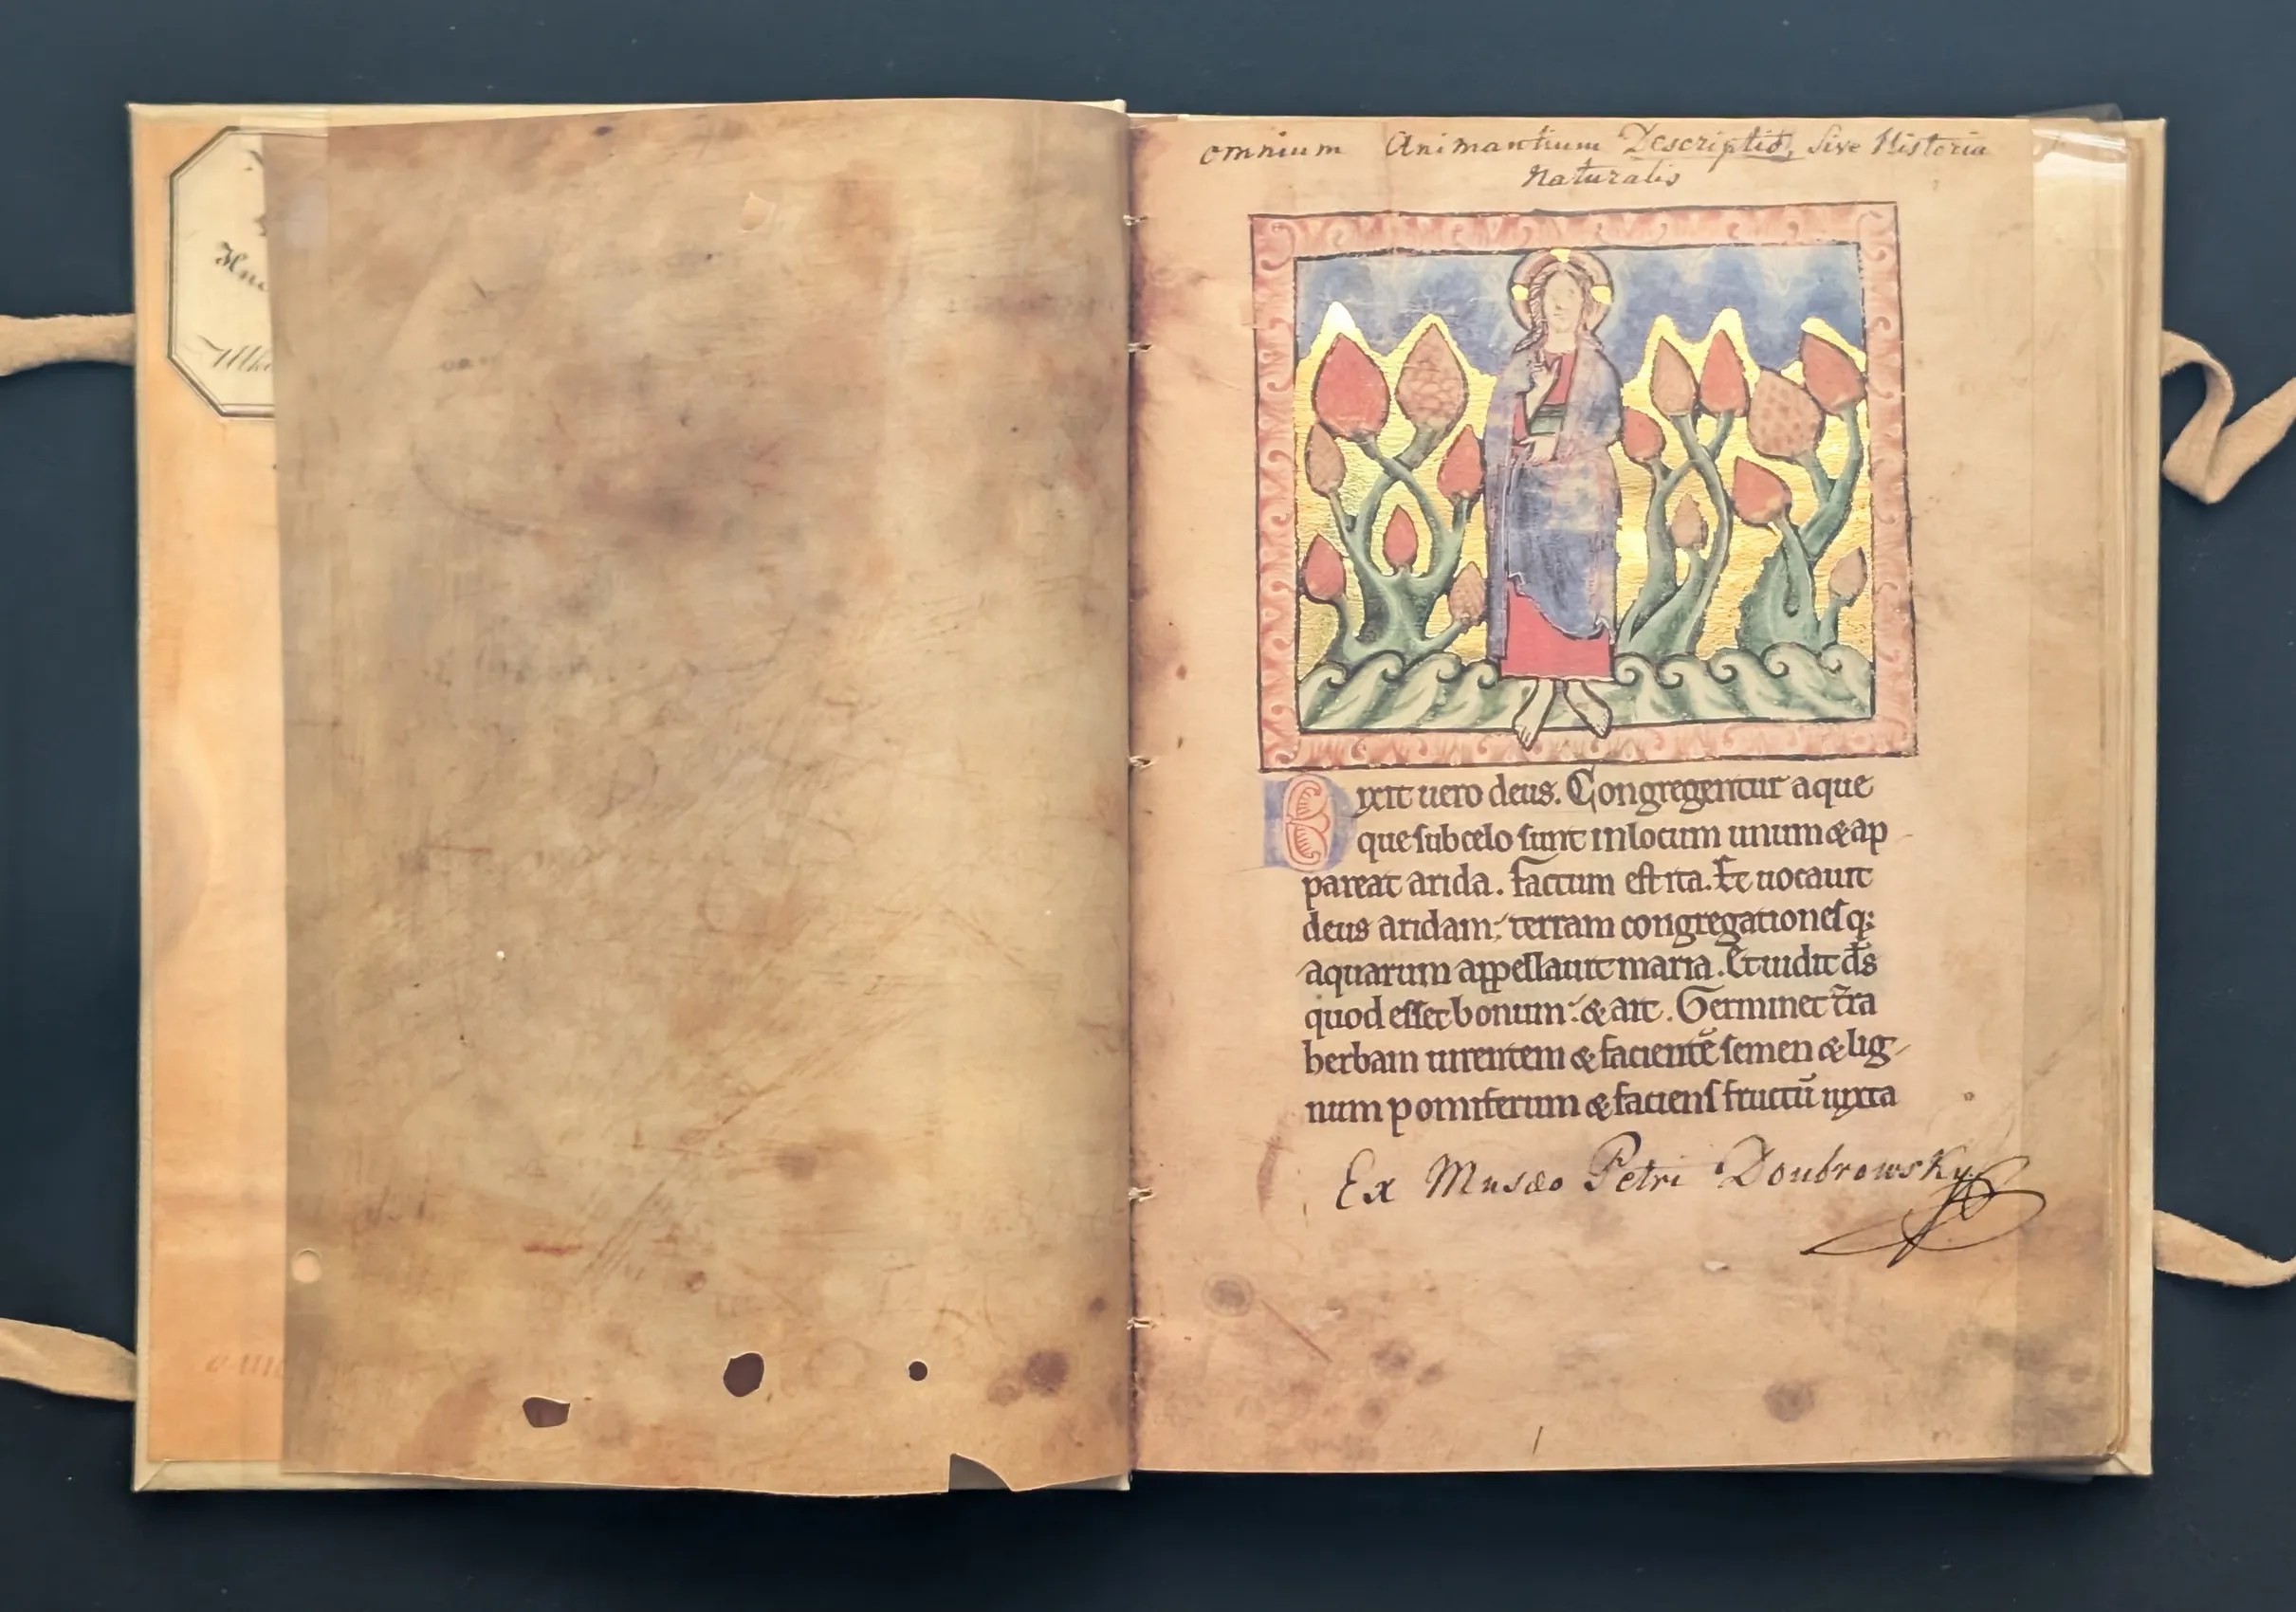 omnium Animantium Descriptio, sive Historia
Naturalis
Dixit uero deus. Congregentur aque
que sub celo sunt in locum unum & ap
pareat arida. Factum est ita. Et uocauit
deus aridam; terram congregationesq;
aquarum appellauit maria. Et uidit d̄s
quod esset bonum; & ait. Germinet t̄ra
herbam uirentem & facientē semen & lig-
num pomiferum & faciens fructū iuxta
Ex Musæo Petri Doubrowsky
1